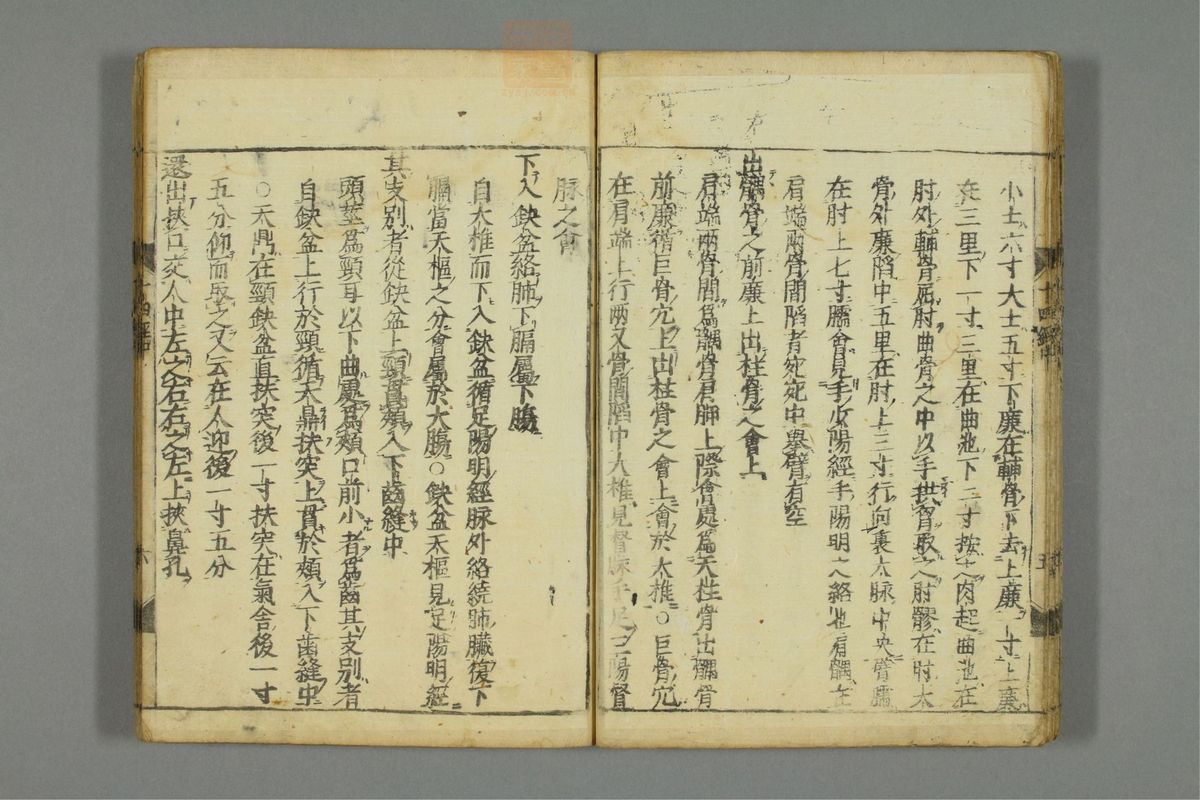 小士六寸大士五寸下廉在輔骨下去上廉一寸上廉
在三里下一寸三里在曲池下二寸按之肉起曲池在
肘外輔骨屈肘曲骨之中以手拱胷取之肘髎在肘大
骨外廉䧟中五里在肘上三寸行向裏大脉中央臂臑
在肘上七寸臑會見手少陽經手陽明之絡也肩髃在
肩端兩骨間䧟者宛宛中擧臂有空
出髃骨之前廉上出柱骨之會上
肩端兩骨間爲髃骨肩胛上際會處爲天柱骨出髃骨
前廉循巨骨穴上出柱骨之會上會於大椎○巨骨穴
在肩端上行兩叉骨間䧟中大椎見督脉手足三陽督
脉之會
下入缺盆絡肺下膈屬下膓
自大椎而下入缺盆循足陽明經脉外絡繞肺臟復下
膈當天樞之分會屬於大膓○缺盆天樞見足陽明經
其支別者從缺盆上頸貫頰入下齒縫中
頭莖爲頸耳以下曲處爲頰口前小者爲齒其支別者
自缺盆上行於頸循天鼎扶突上貫於頰入下齒縫中
○天鼎在頸缺盆直扶突後一寸扶突在氣舍後一寸
五分仰而取之又云在人迎後一寸五分
還出挾口交人中左之右右之左上挾鼻孔
十四經
五
六